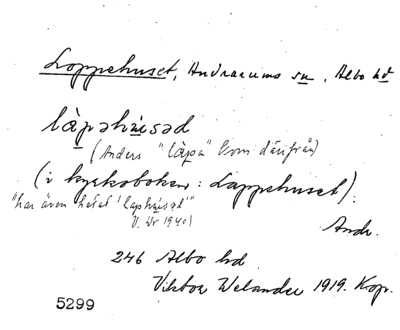 Loppehuset, Andrarums sn, Albo hd
låpəhu̇səd
(Anders "låpa" kom därifrån)
(i kyrkoboken: Lappehuset).
"har även hetat 'laphusəd'"
V. Wr 1940)
Andr.
246 Albo hd
Viktor Welander 1919. Kop.
5299